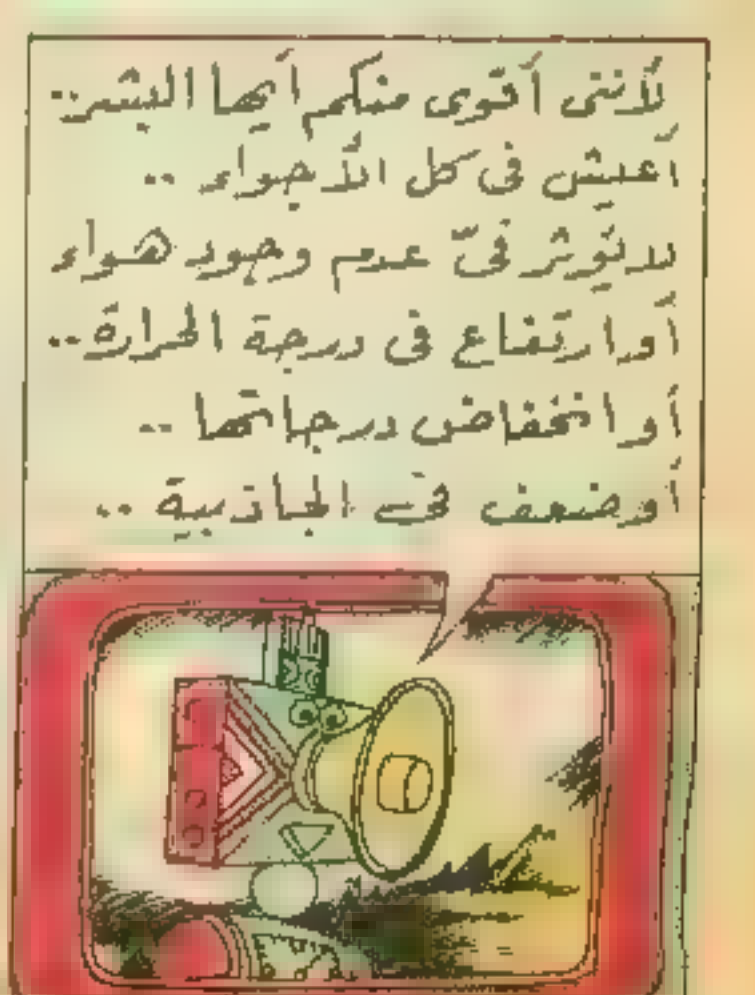 لأننى أقوى منكم أيها البشر..
أعيش فى كل الأجواء ..
لا تؤثر فىّ عدم وجود هواء
أو ارتفاع فى درجة الحرارة ..
أو انخفاض درجاتها ..
أو ضعف فى الجاذبية ..